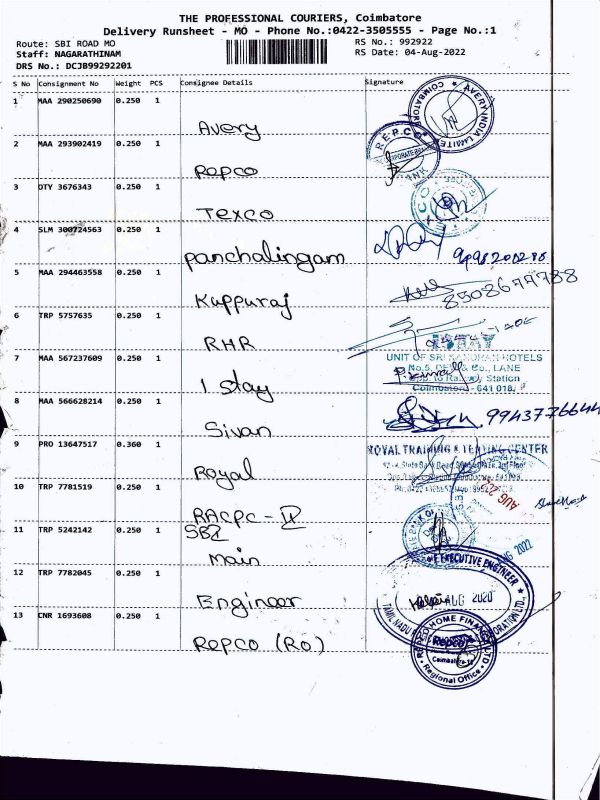 THE PROFESSIONAL COURIERS, Coimbatore
Delivery Runsheet - MO - Phone No.:0422-3505555 - Page No.:1
Route: SBI ROAD MO
RS No.: 992922
Staff: NAGARATHINAM
RS Date: 04-Aug-2022
DRS No.: DCJB99292201
S No Consignment No Weight PCS Consignee Details Signature
1 MAA 290250690 0.250 1
Avery
COIMBATORE AVERY INDIA LIMITED
2 MAA 293902419 0.250 1
Repco
REPCO BANK
3 DTY 3676343 0.250 1
Texco
4 SLM 300724563 0.250 1
Panchalingam
5 MAA 294463558 0.250 1
Kuppuraj
8508677788
6 TRP 5757635 0.250 1
RHR
7 MAA 567237609 0.250 1
I stay
UNIT OF SRI HOTELS
LANE
Station
Coimbatore - 641 018.
8 MAA 566628214 0.250 1
Sivan
9943776644
9 PRO 13647517 0.360 1
Royal
ROYAL TRAINING & TESTING CENTER
10 TRP 7781519 0.250 1
RACPC - IV
AUG 2022
11 TRP 5242142 0.250 1
SBI
main
AUG 2022
12 TRP 7782045 0.250 1
Engineer
EXECUTIVE ENGINEER
AUG 2020
TAMIL NADU CORPORATION LTD.,
13 CNR 1693608 0.250 1
Repco (RO)
REPCO HOME FINANCE LTD
Repco
Coimbatore-18
Regional Office